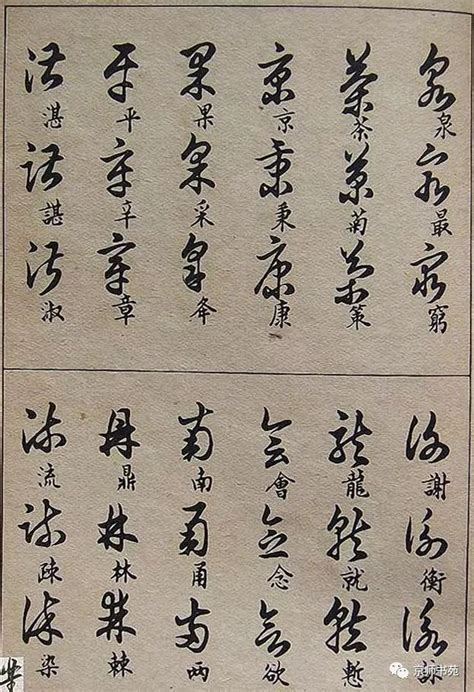 泉最窮
茶菊策
京秉康
果采
平辛章
湛諶淑
謝衡
龍就
會念欲
南甬兩
鼎林棘
流疎染
京师书苑